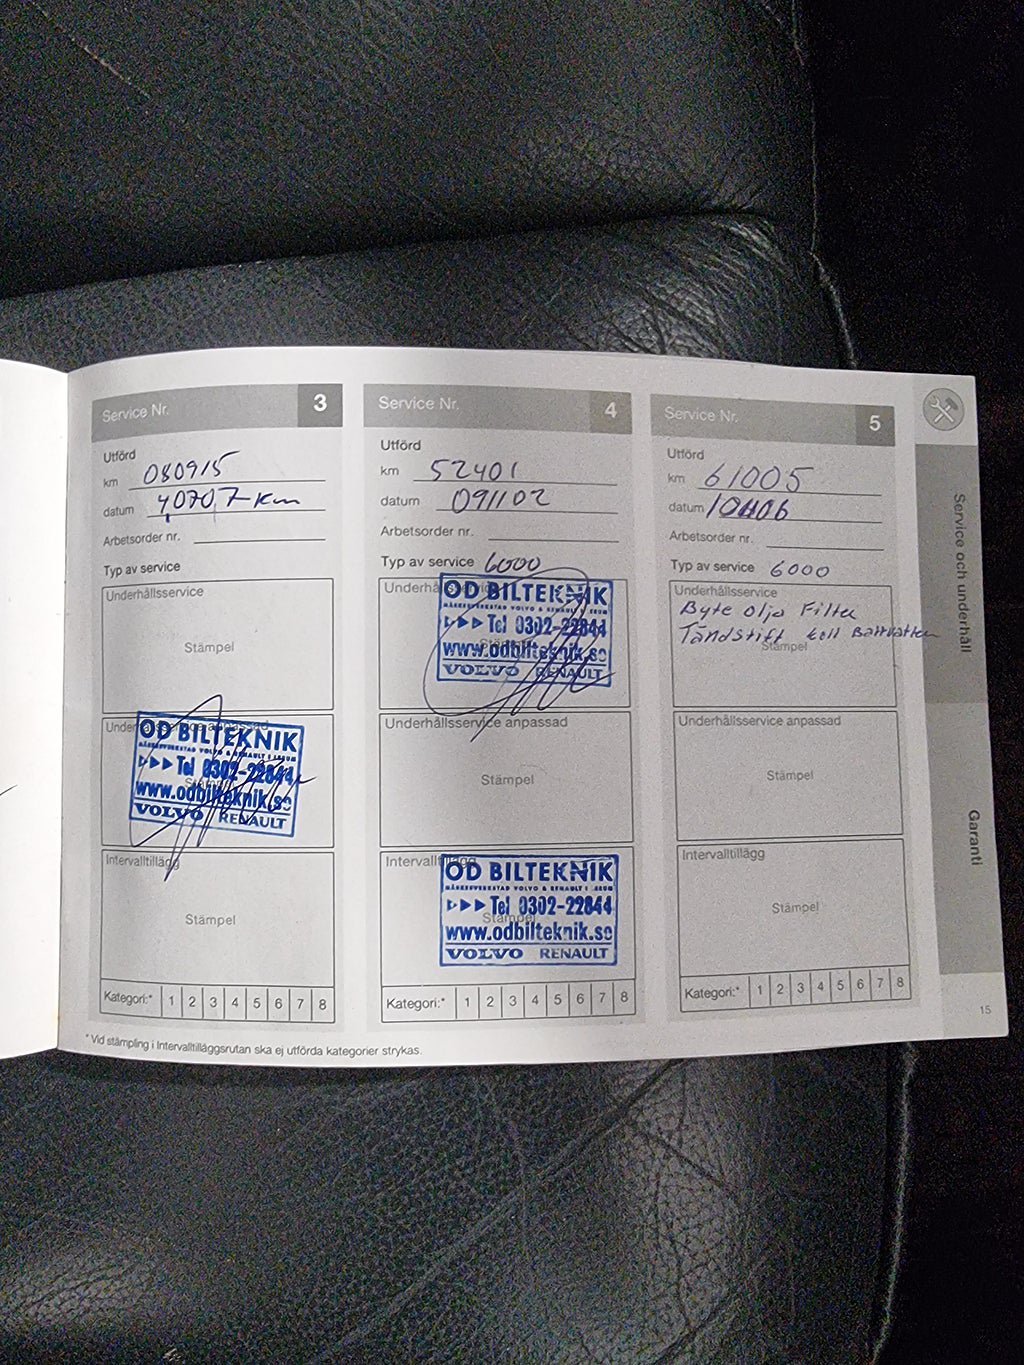 Service Nr. 3
Utförd
km 080915
datum 40707 km
Arbetsorder nr.
Typ av service
Underhållsservice
Stämpel
Underhållsservice anpassad
OD BILTEKNIK
MÄRKESVERKSTAD VOLVO & RENAULT I LERUM
Tel 0302-22844
Stämpel
www.odbilteknik.se
VOLVO RENAULT
Intervalltillägg
Stämpel
Kategori:* 1 2 3 4 5 6 7 8
Service Nr. 4
Utförd
km 52401
datum 091102
Arbetsorder nr.
Typ av service 6000
Underhållsservice
OD BILTEKNIK
MÄRKESVERKSTAD VOLVO & RENAULT I LERUM
Tel 0302-22844
Stämpel
www.odbilteknik.se
VOLVO RENAULT
Underhållsservice anpassad
Stämpel
Intervalltillägg
OD BILTEKNIK
MÄRKESVERKSTAD VOLVO & RENAULT I LERUM
Tel 0302-22844
Stämpel
www.odbilteknik.se
VOLVO RENAULT
Kategori:* 1 2 3 4 5 6 7 8
Service Nr. 5
Utförd
km 61005
datum
Arbetsorder nr.
Typ av service 6000
Underhållsservice
Byte olja Filter
Tändstift koll Battvatten
Stämpel
Underhållsservice anpassad
Stämpel
Intervalltillägg
Stämpel
Kategori:* 1 2 3 4 5 6 7 8
* Vid stämpling i Intervalltilläggsrutan ska ej utförda kategorier strykas.
Service och underhåll
Garanti
15